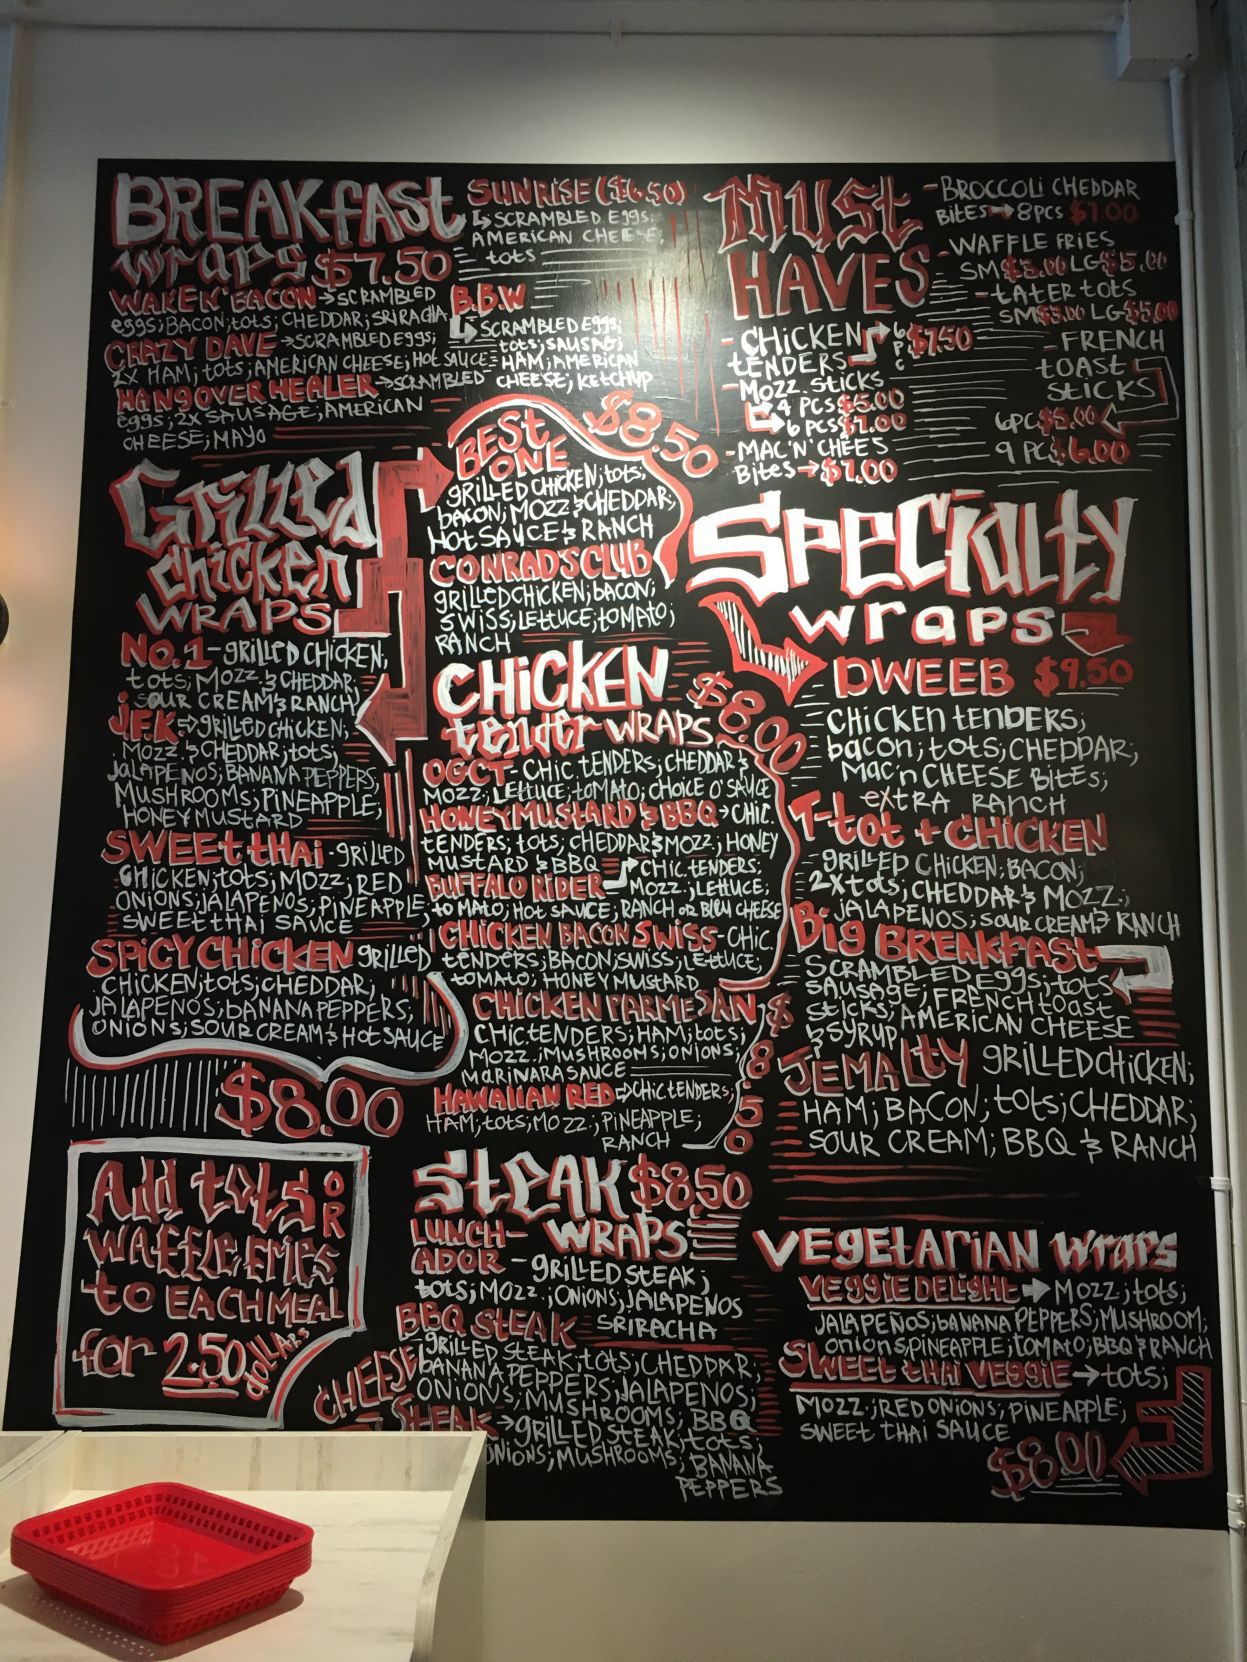 BREAKfast
wraps $7.50
WAKEN' BACON → SCRAMBLED
eggs; BACON; tots; CHEDDAR; SRIRACHA
CRAZY DAVE → SCRAMBLED EGGS;
2X HAM; tots; AMERICAN CHEESE; HOT SAUCE
HANGOVER HEALER → SCRAMBLED
eggs; 2X SAUSAGE; AMERICAN
CHEESE; MAYO
SUNRISE ($6.50)
SCRAMBLED Eggs;
AMERICAN CHEESE;
tots
B.B.W
SCRAMBLED Eggs;
tots; SAUSAG;
HAM; AMERICAN
CHEESE; KETCHUP
MUSt
HAVES
- CHICKEN
tENDERS
6 Pc $7.50
- MOZZ STICKS
4 PCS $5.00
6 PCS $7.00
- MAC 'N' CHEES
Bites → $7.00
- BROCCOLI CHEDDAR
BITES → 8 PCS $7.00
- WAFFLE FRIES
SM $3.00 LG $5.00
- tAtER tOtS
SM $3.00 LG $5.00
- FRENCH
tOASt
StICKS
6PC $5.00
9 PC $6.00
Grilled
chicken
WRAPS
NO. 1 - GRILLED CHICKEN;
tots; MOZZ & CHEDDAR;
SOUR CREAM & RANCH
J.F.K → GRILLED CHICKEN;
MOZZ & CHEDDAR; tots;
JALAPENOS; BANANA PEPPERS;
MUSHROOMS; PINEAPPLE;
HONEY MUSTARD
SWEEt tHAi - GRILLED
CHICKEN; tots; MOZZ; RED
ONIONS; JALAPENOS; PINEAPPLE;
SWEET THAI SAUCE
SPICY CHICKEN GRILLED
CHICKEN; TOTS; CHEDDAR;
JALAPENOS; bANANA PEPPERS;
ONIONS; SOUR CREAM & HOt SAUCE
$8.00
BEST
ONE
$8.50
GRILLED CHICKEN; tots;
bacon; MOZZ & CHEDDAR;
HOt SAUCE & RANCH
CONRAD'S CLUB
GRILLED CHICKEN; BACON;
SWISS; LEttUCE; tOMATO;
RANCH
CHICKEN
tender WRAPS $8.00
OGCT - CHIC. TENDERS; CHEDDAR &
MOZZ; LEttUCE; tOMATO; CHOICE O' SAUCE
HONEY MUSTARD & BBQ → CHIC.
tENDERS; tots; CHEDDAR & MOZZ; HONEY
MUSTARD & BBQ
BUFFALO RIDER CHIC. tENDERS;
MOZZ.; LEttUCE;
tOMATO; HOt SAUCE; RANCH OR BLEU CHEESE
CHICKEN BACON SWISS - CHIC.
tENDERS; BACON; SWISS; LEttUCE;
tOMATO; HONEY MUSTARD
CHICKEN PARMESAN $8.50
CHIC. TENDERS; HAM; tots;
MOZZ.; MUSHROOMS; ONIONS;
MARINARA SAUCE
HAWAIIAN RED → CHIC. tENDERS;
HAM; tots; MOZZ.; PINEAPPLE;
RANCH
SPECIALTY
wraps
DWEEB $9.50
CHICKEN tENDERS;
bacon; tOtS; CHEDDAR;
MAC 'n CHEESE BItES;
EXTRA RANCH
T-tot + CHICKEN
GRILLED CHICKEN; BACON;
2X tots; CHEDDAR & MOZZ.;
JALAPENOS; SOUR CREAM & RANCH
Big BREAKfast
SCRAMBLED Eggs; tots
SAUSAGE; FRENCH toast
sticks; AMERICAN CHEESE
& SYRUP
JEMALtty GRILLED CHICKEN;
HAM; BACON; tOtS; CHEDDAR;
SOUR CREAM; BBQ & RANCH
Add tots OR
WAffLE fRIES
to EACH MEAL
for 2.50 DOLLARS
StEAK $8.50
WRAPS
LUNCH-
ADOR - GRILLED StEAK;
tOtS; MOZZ.; ONIONS; JALAPENOS
SRIRACHA
BBQ STEAK
GRILLED StEAK; tOtS; CHEDDAR;
BANANA PEPPERS; JALAPENOS;
ONIONS; MUSHROOMS; BBQ
CHEESE
STEAK → GRILLED STEAK; tots;
ONIONS; MUSHROOMS; BANANA
PEPPERS
VEGETARIAN wraps
VEGGIE DELIGHT → MOZZ; tOtS;
JALAPEÑOS; bANANA PEPPERS; MUSHROOM;
Onions; PINEAPPLE; TOMATO; BBQ & RANCH
SWEET tHAi VEGGIE → tOtS;
MOZZ.; RED ONIONS; PINEAPPLE;
SWEET THAI SAUCE
$8.00